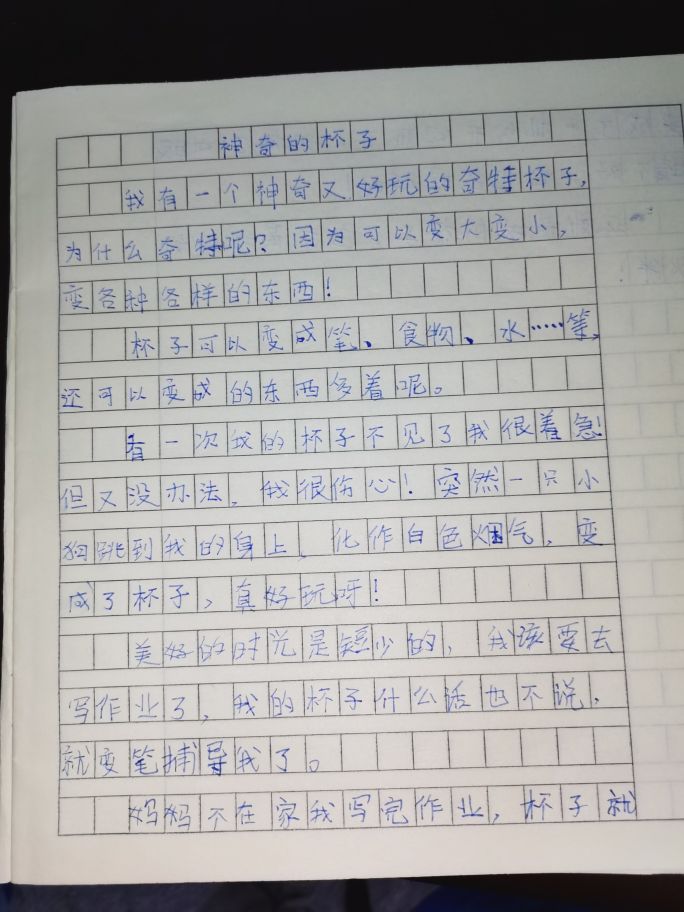 神奇的杯子
我有一个神奇又好玩的奇特杯子,
为什么奇特呢？因为可以变大变小,
变各种各样的东西！
杯子可以变成笔、食物、水……等,
还可以变成的东西多着呢。
有一次我的杯子不见了我很着急
但又没办法,我很伤心！突然一只小
狗跳到我的身上,化作白色烟气,变
成了杯子,真好玩呀！
美好的时光是短少的,我该要去
写作业了,我的杯子什么话也不说,
就变笔捕导我了。
妈妈不在家我写完作业,杯子就